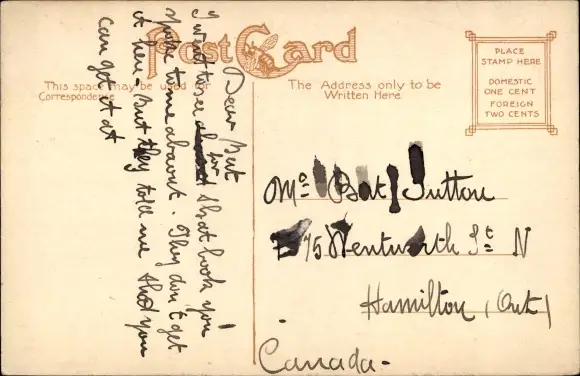 Post Card
This space may be used for
Correspondence
The Address only to be
Written Here
PLACE
STAMP HERE
DOMESTIC
ONE CENT
FOREIGN
TWO CENTS
Dear Bert
I went to see
for that book you
wrote to me about. They don't get
it here - But they told me that you
can get it at
Mr Bert Sutton
75 Wentworth St N
Hamilton (Ont)
Canada-